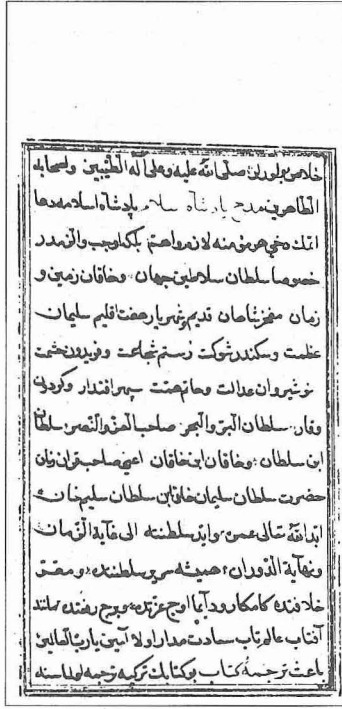 خلاص بولورلر صلّى اللّه عليه وعلى آله الطّيبين واصحابه
الطاهرين مدح پادشاه اسلام پادشاه اسلامه دعا
اتمك دخى هر مؤمنه لازم واهتم بلكه اوجب والزمدر
خصوصا سلطان سلاطين جهان وخاقان زمين و
زمان مفخر شاهان قديم وشهريار هفت اقليم سليمان
عظمت وسكندر شوكت رستم شجاعت وفريدون حشمت
نوشيروان عدالت وحاتم همّت سپهر اقتدار وكردون
وقار سلطان البرّ والبحر صاحب العزّ والنّصر سلطان
ابن سلطان وخاقان ابن خاقان اعنى صاحب قران زمان
حضرت سلطان سليمان خان ابن سلطان سليم خان
ابّد اللّه تعالى عمره وايّد سلطنته الى غاية الزّمان
ونهاية الدّوران هميشه سرير سلطنتده ومقرّ
خلافتده كامكار ودائما اوج عزّتده وبرج رفعتده مانند
آفتاب عالمتاب سعادت مدار اولا آمين يا ربّ العالمين
باعث ترجمۀ كتاب بو كتابك تركيه ترجمه اولماسنه